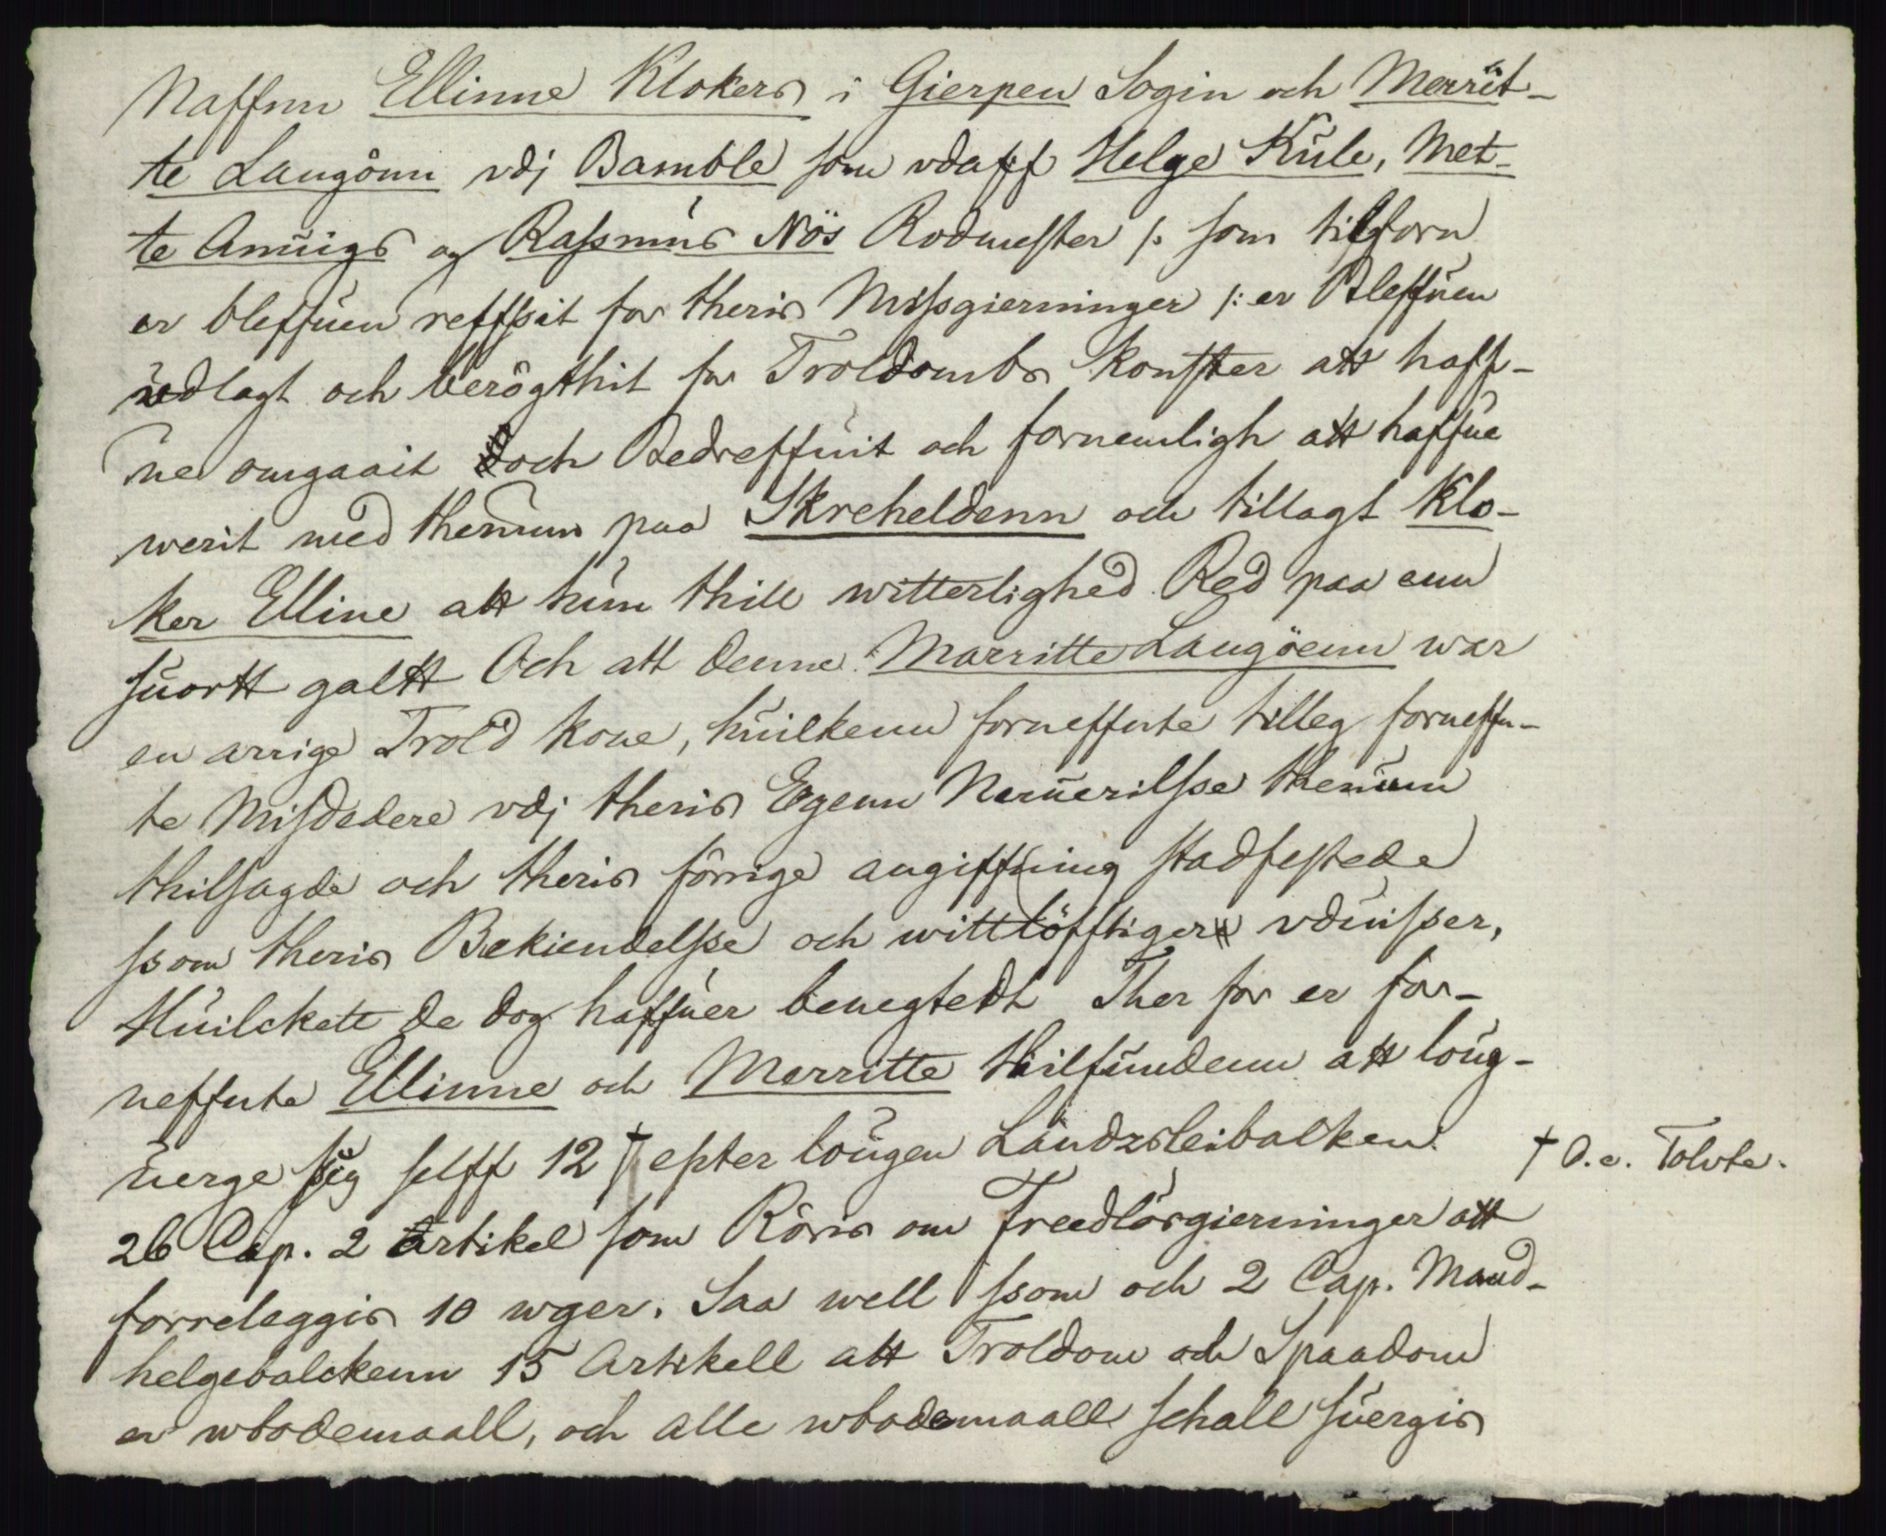 Naffnn Ellinne Klokers i Gierpen Sogin och Merrit-
te Langönn vdj Bamble som vdaff Helge Kule, Met-
te Anuigs og Rasmus Nös Rodmester /: som tilforn
er bleffuen reffsit for theris Missgierninger /: er Bleffuen
vedlagt och berögthit for Troldombs konster att haff-
ue omgaait och Bedreffuit och fornemligh att haffue
werit med themun paa Skreheldenn och tillagt Klo-
ker Elline att hun thill witterlighed Red paa enn
suortt galtt Och att denne Marritte Langöenn war
en arrige Trold kone, huilkenn forneffnte tilleg forneffn-
te Misdedere vdj theris Egenn Neruerilsse themum
thilsagde och theris förrige angiffning stadfestede
ssom theris Bekiendelsse och wittlöfftiger vduisser,
Huilckett de dog haffuer benegtedt Ther for er for-
neffnte Ellinne och Merritte thilfundenn att loug-
uerge sig selff 12 † epter lougen Landzleibalken
† ɔ. c. Tolvte.
26 Cap. 2 Artikel som Röris om Freedlösgierninger att
forreleggis 10 wger. Saa well ssom och 2 Cap. Mand-
helgebalckenn 15 Artikell att Troldom och Spaadom
er wbodemaall, och alle wbodemaall schall suergis